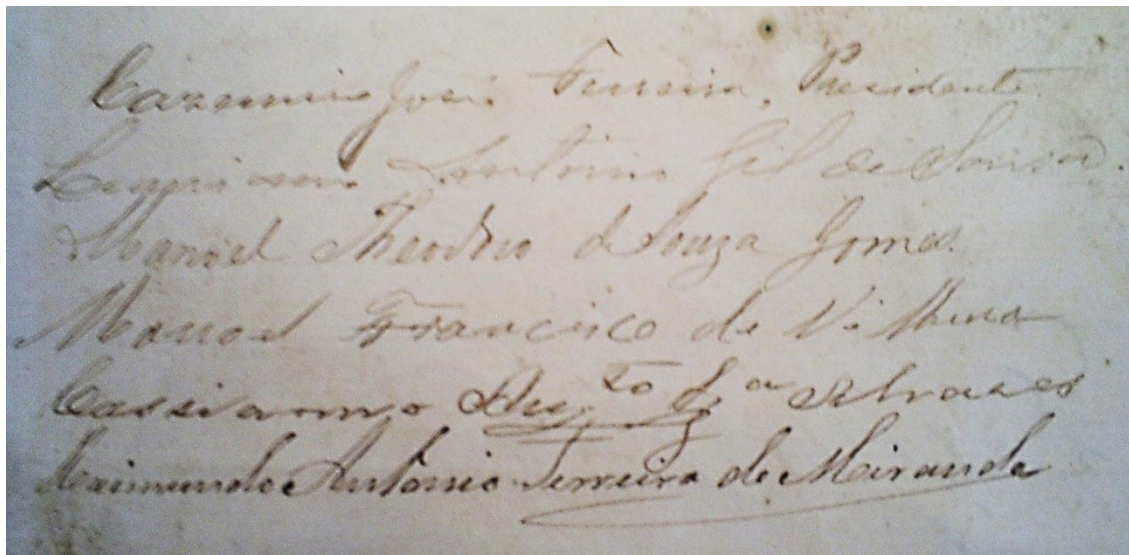 Cazimiro José Ferreira, Presidente
Antonio Gil de Sousa.
Manoel Theodoro d Souza Gomes.
Manoel Francisco de Vilhena
Cassiano Alvares
Raimundo Antonio Ferreira de Miranda